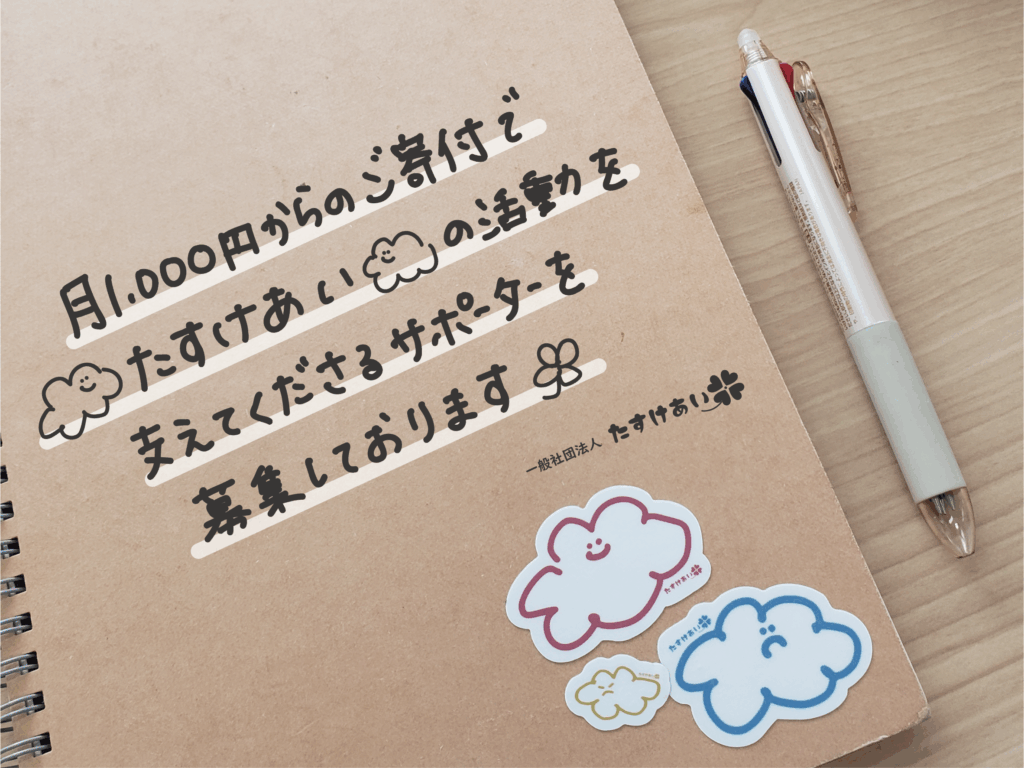 月1.000円からのご寄付で
たすけあいの活動を
支えてくださるサポーターを
募集しております
一般社団法人 たすけあい
たすけあい
たすけあい